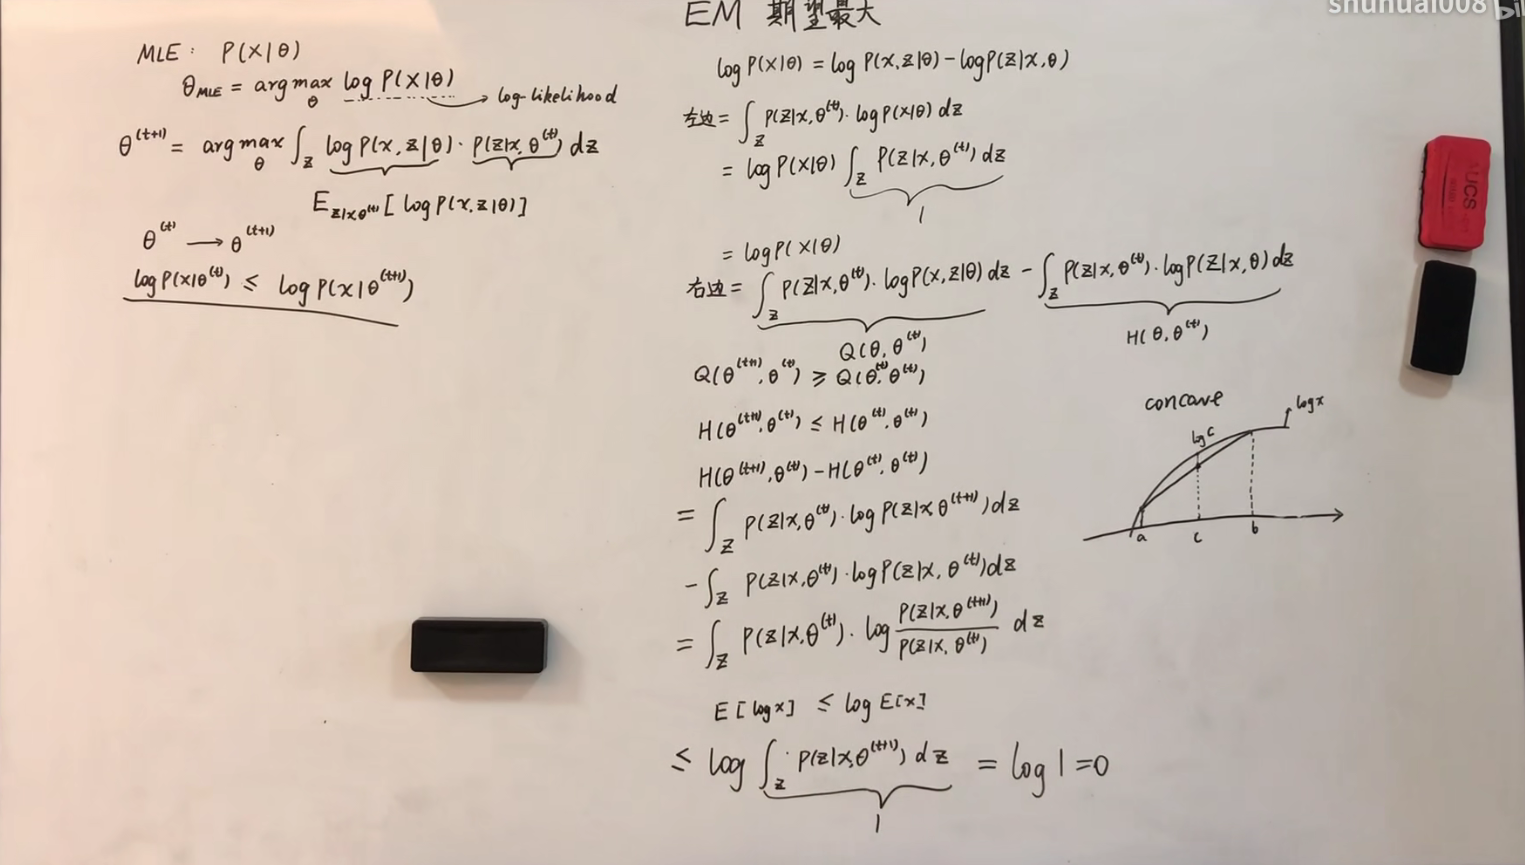 shuhuai008 bili
EM 期望最大
MLE: P(X|θ)
θ_MLE = argmax_θ log P(X|θ) → log-likelihood
θ^(t+1) = argmax_θ ∫_z log P(x,z|θ) · P(z|x,θ^(t)) dz
E_z|x,θ^(t) [log P(x,z|θ)]
θ^(t) → θ^(t+1)
log P(x|θ^(t)) ≤ log P(x|θ^(t+1))
log P(x|θ) = log P(x,z|θ) - log P(z|x,θ)
左边 = ∫_z P(z|x,θ^(t)) · log P(x|θ) dz
= log P(x|θ) ∫_z P(z|x,θ^(t)) dz
1
= log P(x|θ)
右边 = ∫_z P(z|x,θ^(t)) · log P(x,z|θ) dz - ∫_z P(z|x,θ^(t)) · log P(z|x,θ) dz
Q(θ,θ^(t))
H(θ,θ^(t))
Q(θ^(t+1),θ^(t)) ≥ Q(θ^(t),θ^(t))
H(θ^(t+1),θ^(t)) ≤ H(θ^(t),θ^(t))
H(θ^(t+1),θ^(t)) - H(θ^(t),θ^(t))
= ∫_z P(z|x,θ^(t)) · log P(z|x,θ^(t+1)) dz
- ∫_z P(z|x,θ^(t)) · log P(z|x,θ^(t)) dz
= ∫_z P(z|x,θ^(t)) · log P(z|x,θ^(t+1)) / P(z|x,θ^(t)) dz
E[log x] ≤ log E[x]
≤ log ∫_z P(z|x,θ^(t+1)) dz = log 1 = 0
1
concave
log x
log c
a c b
UCS